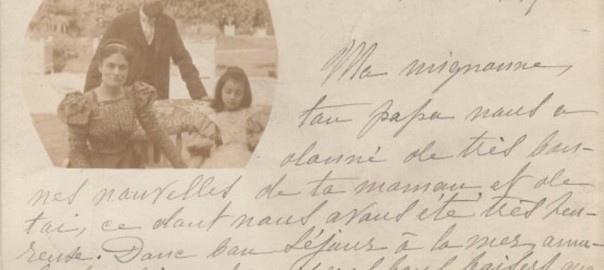 Ma mignonne,
ton papa nous a
donné de très bon-
nes nouvelles de ta maman et de
toi, ce dont nous avons été très heu-
reuse. Donc bon séjour à la mer, amu-